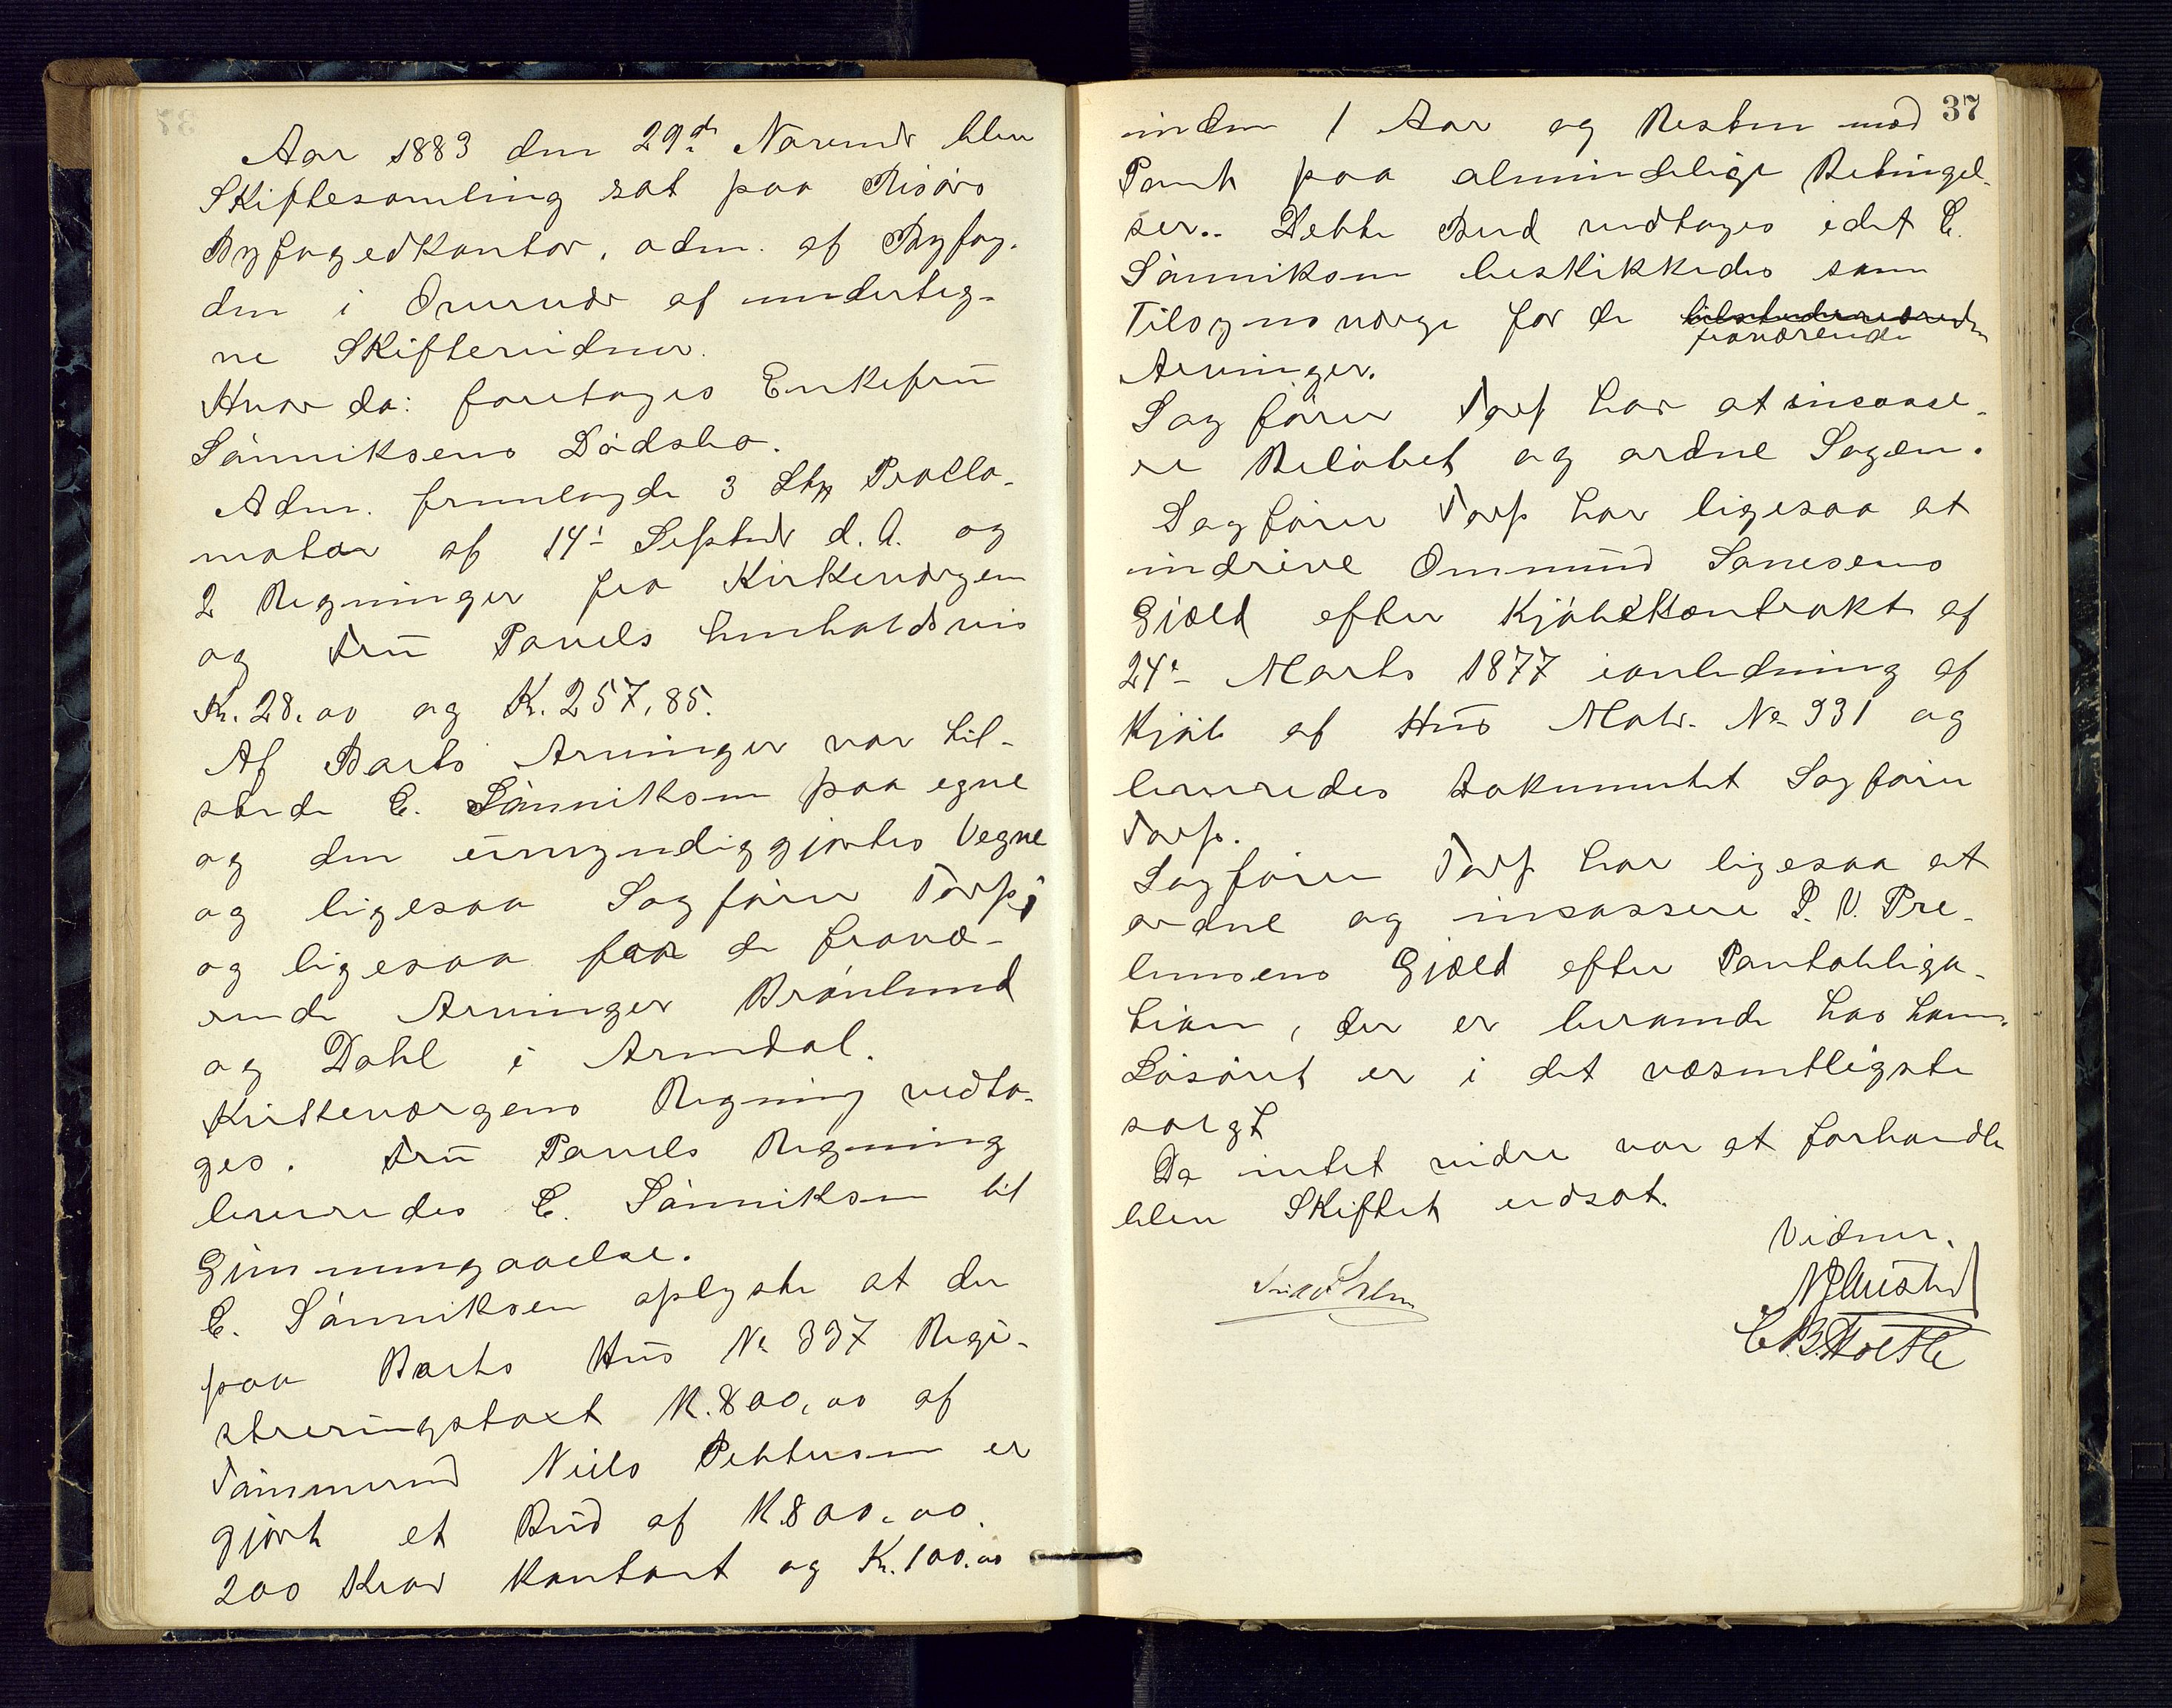 Aar 1883 den 29de Novembr blev
Skiftesamling sat paa Risørs
Byfogedkontor, adm. af Byfog-
den i Overvær af underteg-
ne Skiftevidner.
Hvor da: foretoges Enkefru
Sønniksens Dødsbo.
Adm. fremlagde 3 Stkr Procla-
mataer af 14de Septembr d. A. og
2 Regninger fra Kirkeværgen
og Fru Pavels henholdsvis
Kr. 28.00 og K. 257,85.
Af Boets Arvinger var til-
stede C. Sønniksen paa egne
og den umyndiggjortes Vegne
og ligesaa Sagfører Torp,
og ligesaa for de fravæ-
rende Arvinger Brønlund
og Dahl i Arendal.
Kirkeværgens Regning vedto-
ges. Fru Pavels Regning
leveredes C. Sønniksen til
Gjennemgaaelse.
C. Sønniksen oplyste at der
paa Boets Hus No 337 Regi-
streringstaxt K. 800,00 af
Tømmermd Niels Pettersen er
gjort et Bud af K. 800.00.
200 Kror Kontant og Kr. 100.00
37
inden 1 Aar og Resten mod
Pant paa almindelige Betingel-
ser.. Dette Bud vedtoges idet C.
Sønniksen beskikkedes som
Tilsynsværge for de tilstedeværende
fraværende
Arvinger.
Sagfører Torp har at incasse-
re Beløbet og ordne Sagen.
Sagfører Torp har ligesaa at
inddrive Ommund Sanesens
Gjæld efter Kjøbekontrakt af
24de Marts 1877 ianledning af
Kjøb af Hus Matr. No 331 og
leveredes Dokumentet Sagfører
Torp.
Sagfører Torp har ligesaa at
ordne og incassere P. V.
Gjæld efter Pantobliga-
tion, der er beroende hos ham.
Løsøret er i det væsentligste
solgt
Da intet videre var at forhandle
blev Skiftet udsat.
Vidner.